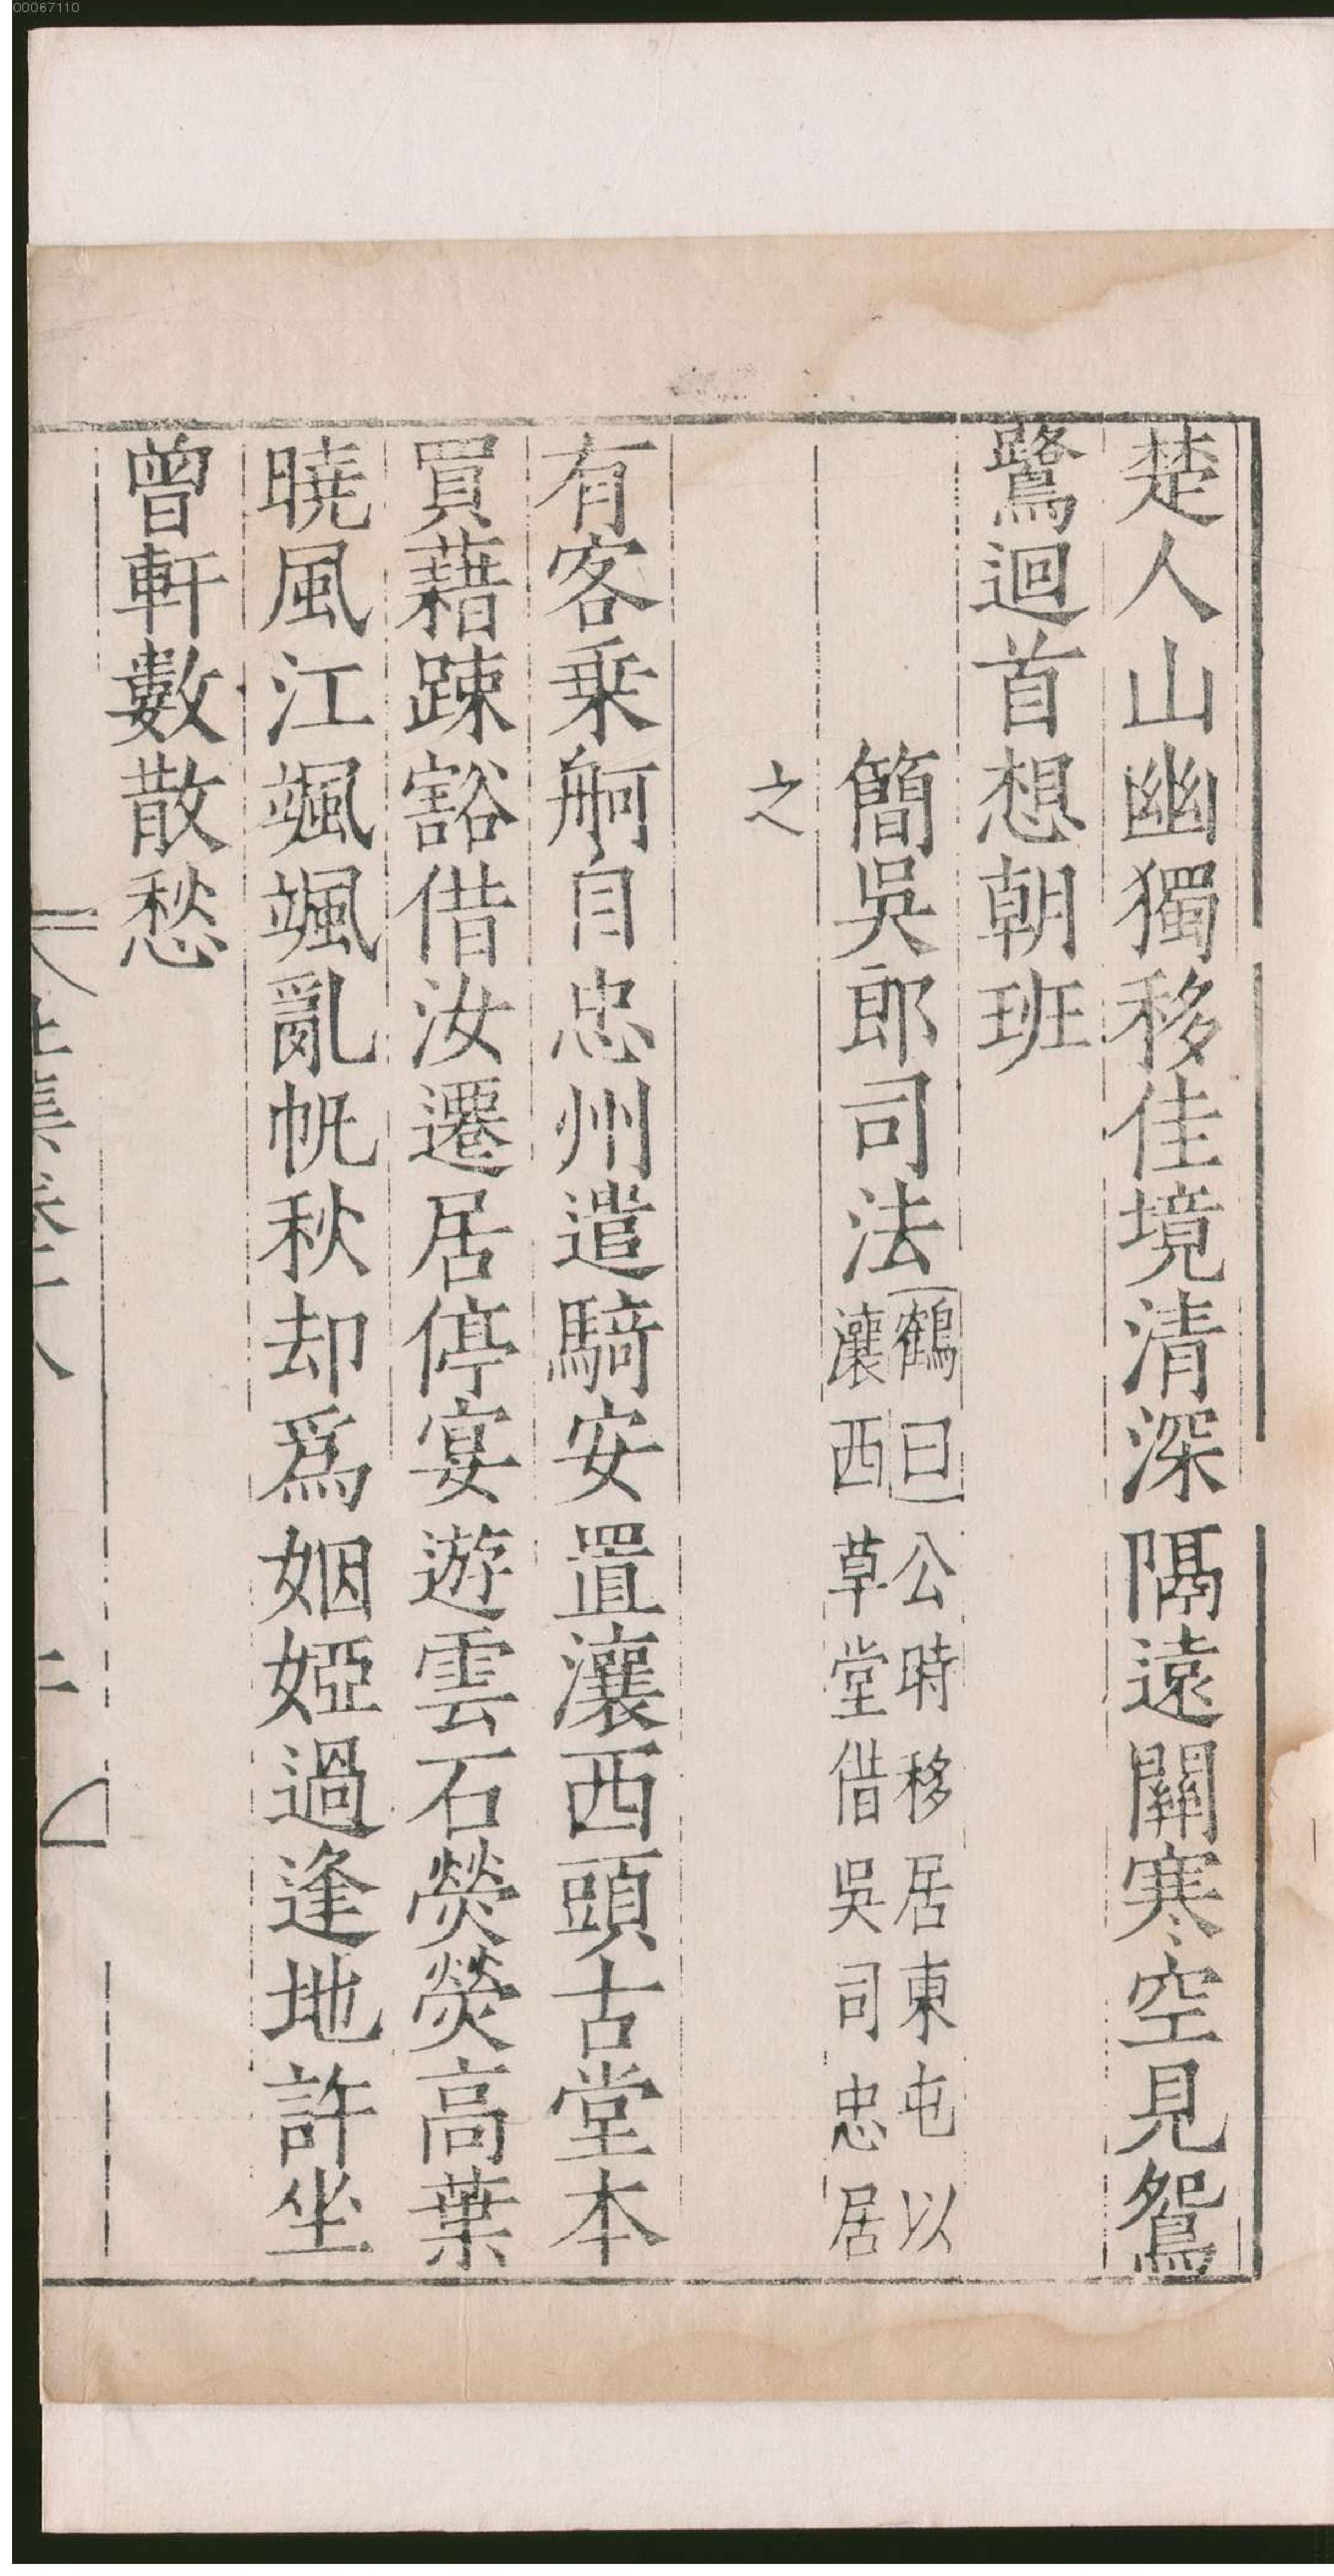 00067110
楚人山幽獨移佳境清深隔遠關寒空見鴛
鷺迴首想朝班
簡吳郎司法
鶴曰公時移居東屯以
瀼西草堂借吳司忠居
之
有客乗舸自忠州遣騎安置瀼西頭古堂本
買藉踈豁借汝遷居停宴遊雲石熒熒高葉
曉風江颯颯亂帆秋却爲姻婭過逢地許坐
曾軒數散愁
杜集卷十八
二